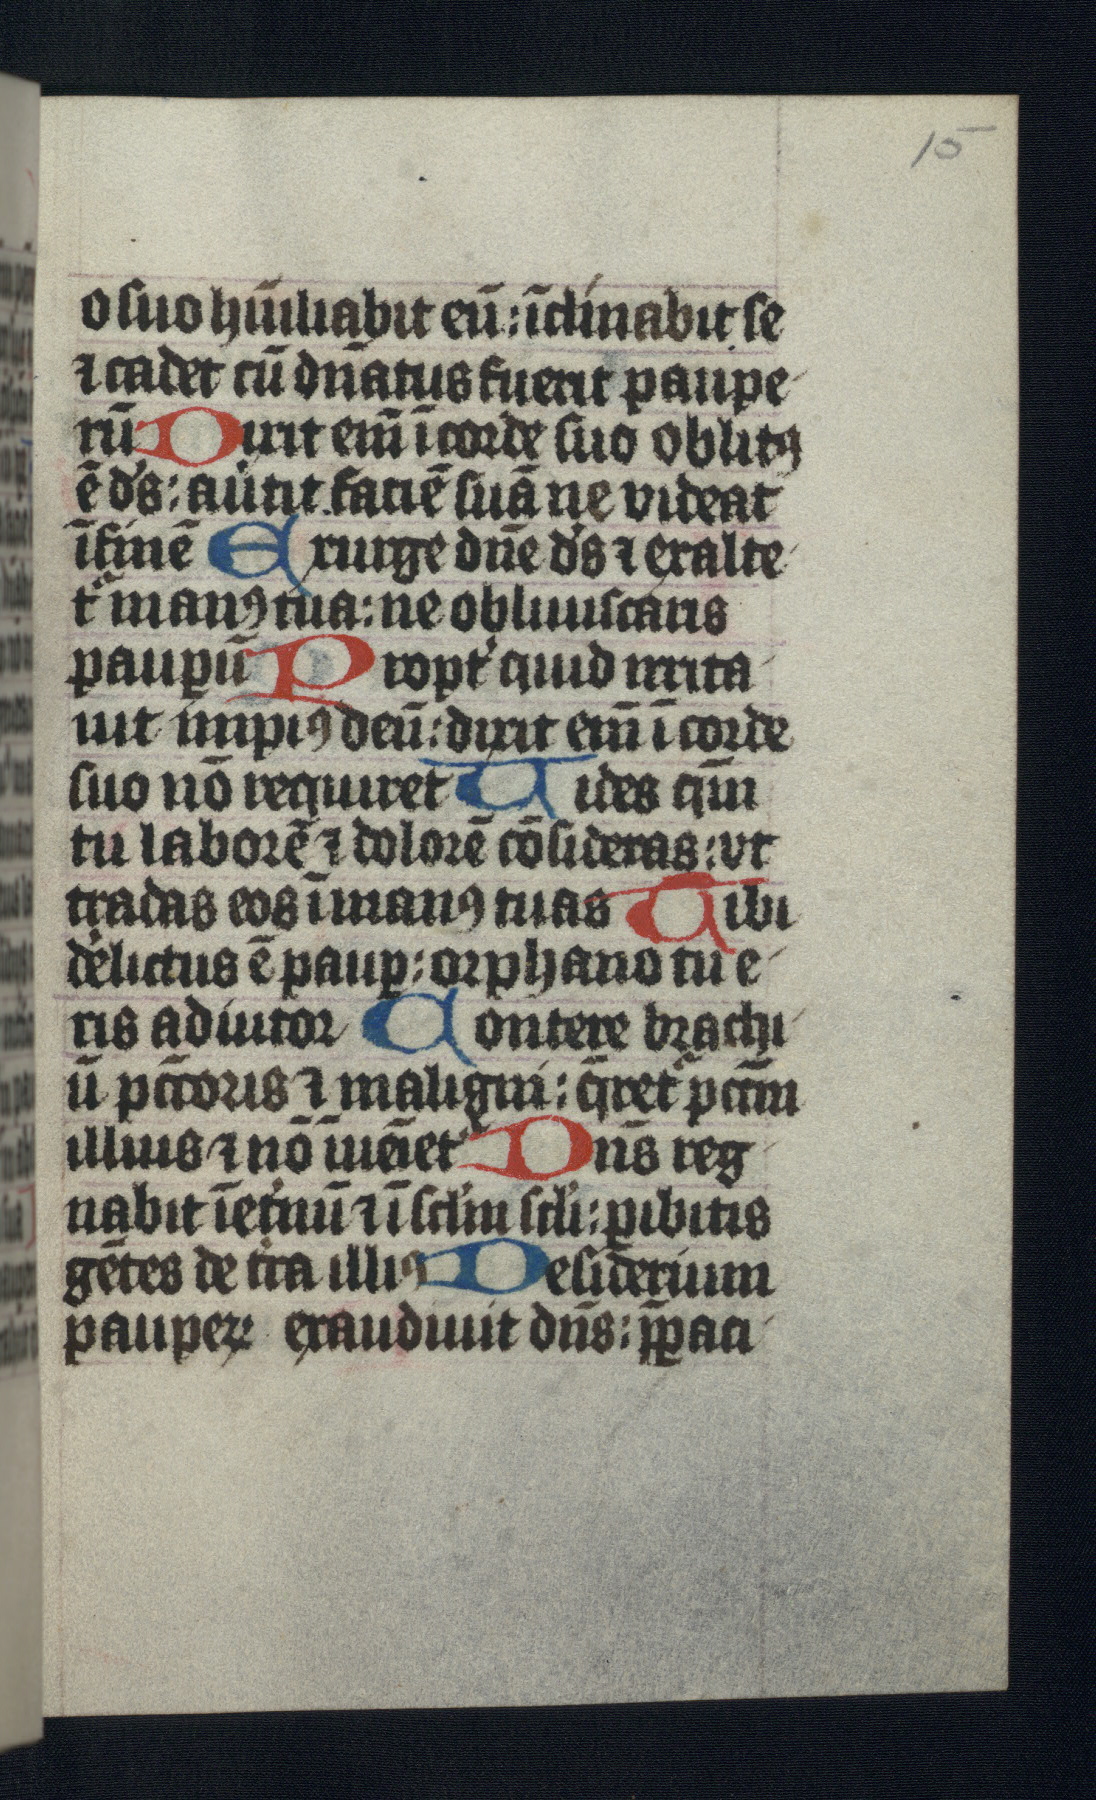 15
o suo hūiliabit eū: īclinabit se
⁊ cadet cū dn̄atus fuerit paupe
rū Dixit em̄ ī corde suo oblitꝰ
ē ds̄: au̇tit faciē suā ne videat
ī finē Exurge dn̄e ds̄ ⁊ exalte
tᷣ manꝰ tua: ne obliuiscaris
paupꝑū Propt̾ quid irrita
uit impiꝰ deū: dixit em̄ ī corde
suo nō requiret Uides qm̄
tu laborē ⁊ dolorē cōsideras: vt
tradas eos ī manꝰ tuas Tibi
de̾lictus ē paupꝑ: orphano tu e
ris adiutor Contere brachi
ū pc̄toris ⁊ maligni: q̄retᷣ pctm̄
illius ⁊ nō īueīetᷣ Dn̄s reg
nabit ī et̾nū ⁊ ī sclm̄ scli̾: ꝑibitis
gētes de t̾ra illiꝰ Desiderium
pauperꝝ exaudiuit dn̄s: p̄paci